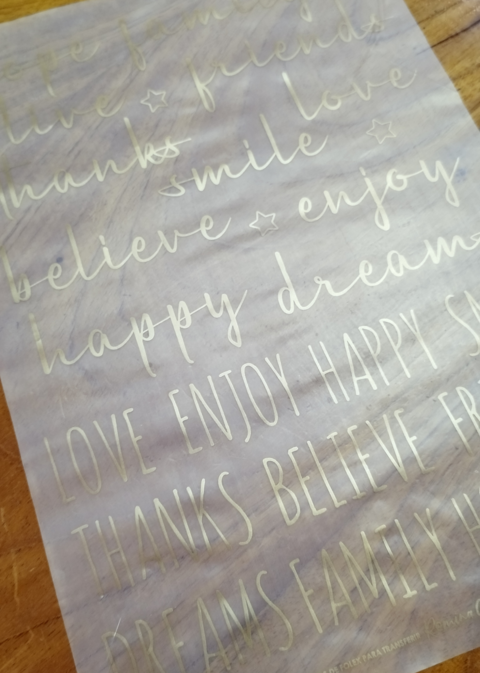 hope family
live ☆ friends
thanks love
smile ☆
believe ☆ enjoy
happy dream
LOVE ENJOY HAPPY SM
THANKS BELIEVE FR
DREAMS FAMILY HO